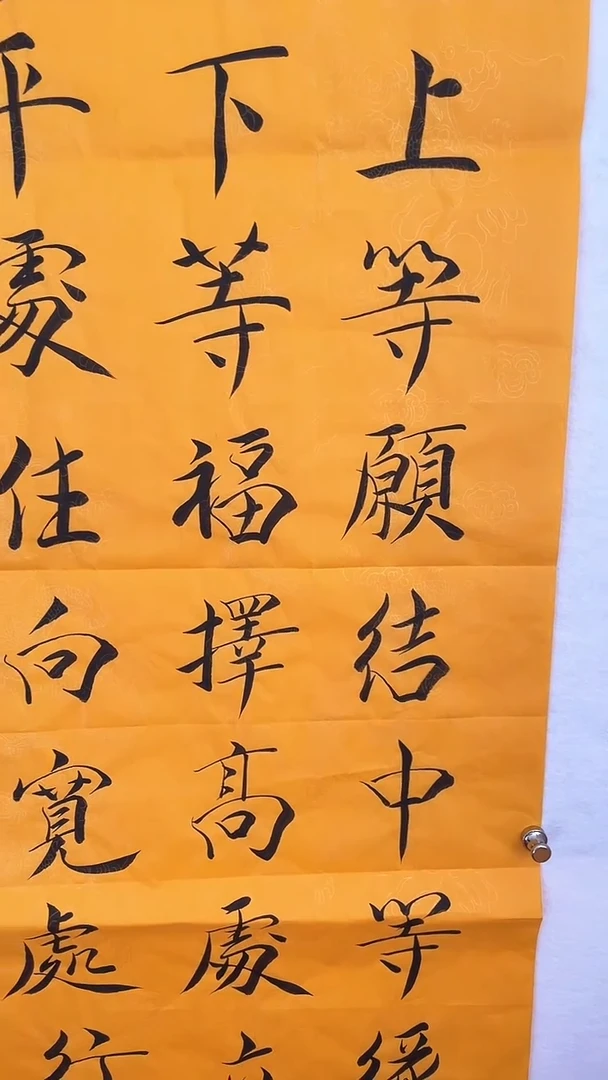 上等願結中等緣
下等福擇高處
平處住向寬處行